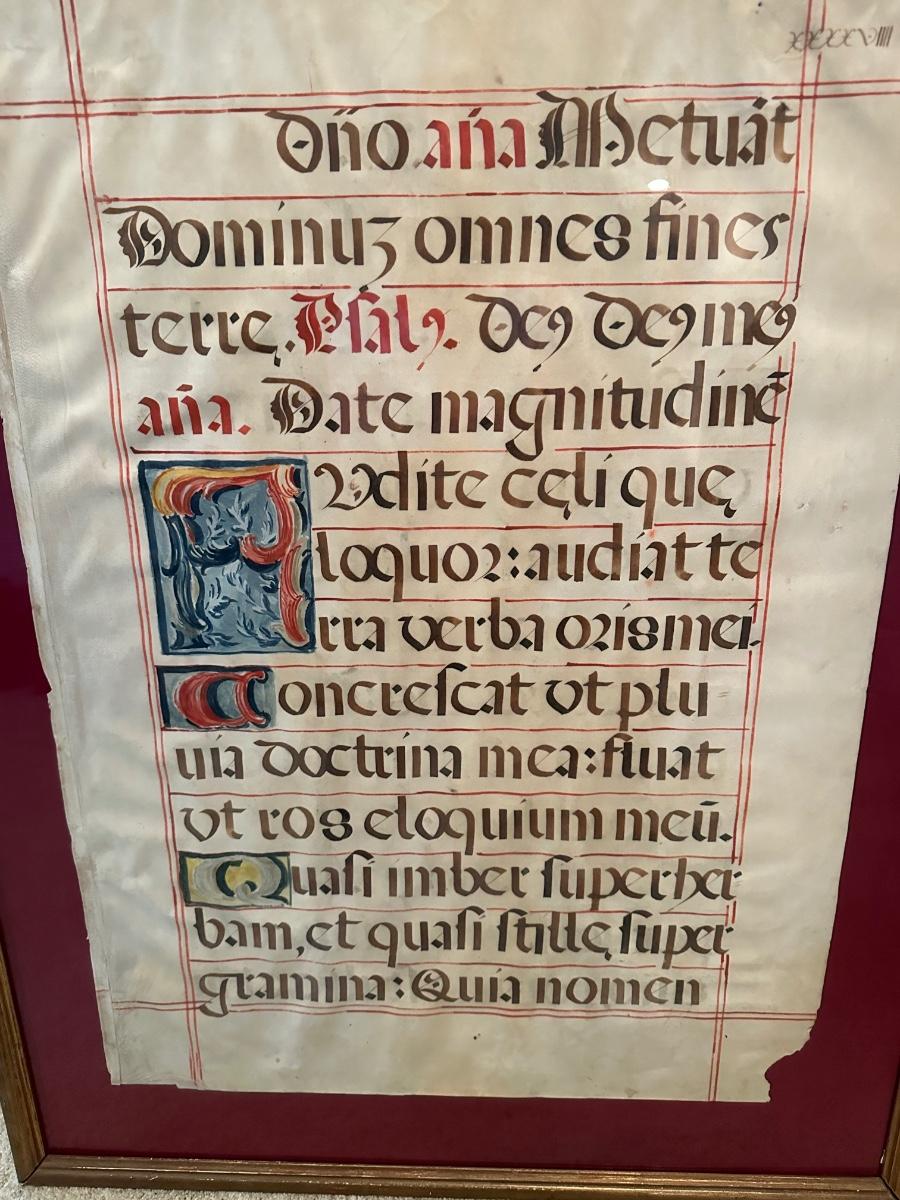 XXXXVIIII
Dn̄o. an̄a Metuāt
Dominuʒ omnes fines
terrę. Psalꝯ. Deꝯ Deꝯ meꝯ
an̄a. Date magnitudinē
AUdite cęli quę
loquor: audiat te
rra verba oris mei.
Concrescat vt plu
uia doctrina mea: fluat
vt ros eloquium meū.
Quasi imber super her
bam, et quasi stillę super
gramina: Quia nomen